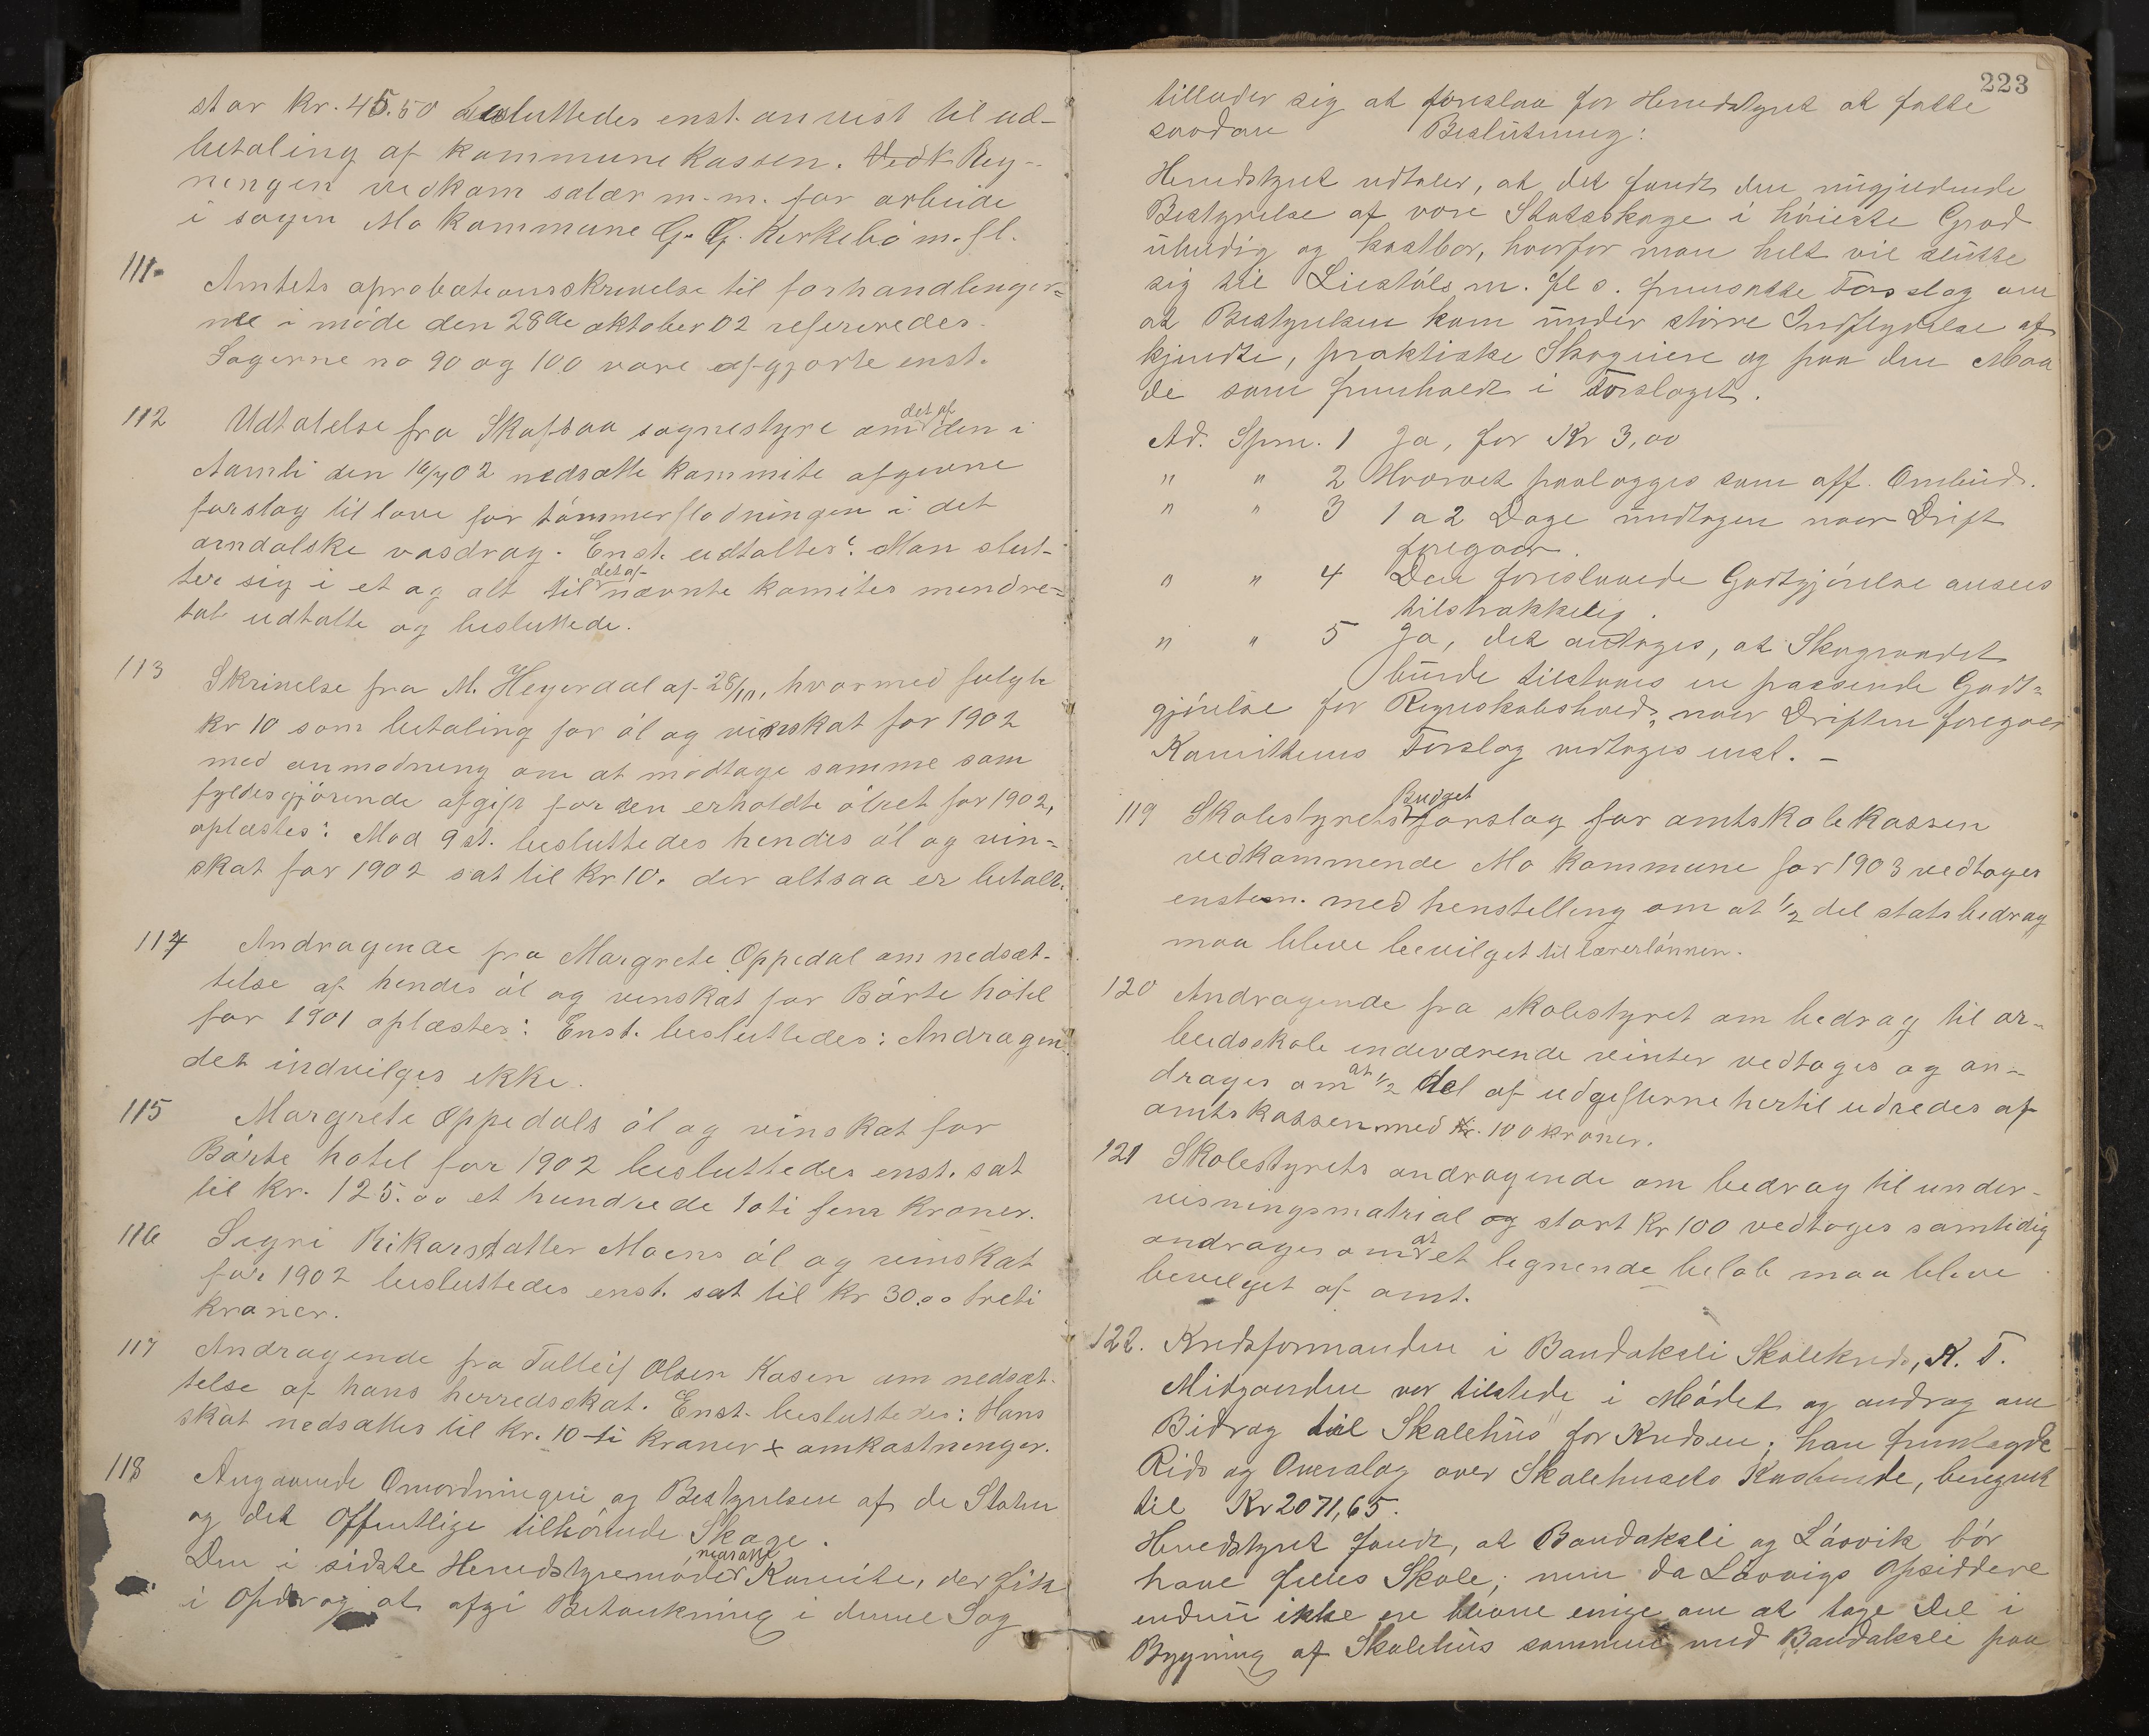 stor kr. 45.50 besluttedes enst. anvist til ud-
betaling af kommunekassen. Vedk Reg-
ningen vedkom salær m.m. for arbeide
i sagen Mo kommune G. G. Kirkebö m. fl.
111. Amtets aprobationsskrivelse til forhandlinger-
ne i möde den 28de oktober 02 refereredes.
Sagerne no 90 og 100 vare afgjorte enst.
112 Udtalelse fra Skafsaa sognestyre om det af den i
Aamli den 16/4 02 nedsatte kommite afgivne
forslag til love for tömmerflodningen i det
arndalske vasdrag. Enst. udtaltes: Man slut-
ter sig i et og alt til det af nævnte komites mindre-
tal udtalte og besluttede.
113 Skrivelse fra M. Heyerdal af 28/10, hvormed fulgte
kr 10 som betaling for öl og vinskat for 1902
med anmodning om at modtage samme som
fyldesgjörende afgift for den erholdte ölret for 1902,
oplæstes: Mod 9 st. besluttedes hendes öl og vin-
skat for 1902 sat til kr 10. der altsaa er betalt.
114 Andragende fra Margrete Oppedal om nedsæt-
telse af hendes öl og vinskat for Börte hotel
for 1901 oplæstes: Enst. besluttedes: Andragen
det indvilges ikke.
115 Margrete Oppedals öl og vinskat for
Börte hotel for 1902 besluttedes enst. sat
til kr. 125.00 et hundrede toti fem kroner.
116 Sigri Rikarsdatter Moens öl og vinskat
for 1902 besluttedes enst. sat til kr 30.00 treti
kroner.
117 Andragende fra Talleif Olsen Kasen om nedsæt-
telse af hans herredsskat. Enst. besluttedes: Hans
skat nedsattes til kr. 10 ti kroner x omkastninger.
118 Angaaende Omordningen og Bestyrelsen af de Staten
og det Offentlige tilhörende Skoge.
Den i sidste Herredstyremöde nedsatte Komite, der fik
i Opdrag at afgi Betænkning i denne Sag
223
tillader sig at foreslaa for Herredstyret at fatte
saadan Beslutning:
Herredstyret udtaler, at det fandt den nugjældende
Bestyrelse af vore Statsskoge i höieste Grad
uheldig og kostbar, hvorfor man helt vil slutte
sig til Liestöls m. fl s. fremsatte Forslag om
at Bestyrelsen kom under större Indflydelse af
kjendte, praktiske Skogeiere og paa den Maa
de som fremholdt i Forslaget.
Ad. Spm. 1 Ja, for Kr 3,00
" " 2 Hvervet paalægges som off. Ombud.
" " 3 1 a 2 Dage undtagen naar Drift
foregaar.
" " 4 Den foreslaaede Godtgjörelse ansees
tilstrækkelig.
" " 5 Ja, det antages, at Skograadet
burde tilstaaes en passende Godt-
gjörelse for Regnskabshold, naar Driften foregaar
Komitteens Forslag vedtoges enst. –
119 Skolestyrets Budget forslag for amtskolekassen
vedkommende Mo kommune for 1903 vedtages
enstem. med henstilleng om at 1/2 del statsbedrag
maa bleve beevilget til lærerlönnen.
120 Andragende fra skolestyret om bedrag til ar-
beidsskole indeværende vinter vedtoges og an-
drages om at 1/2 del af udgifterne hertil udredes af
amtskassen med kr. 100 kroner.
121 Skolestyrets andragende om bedrag til under-
visningsmatrial og stort kr 100 vedtoges samtidig
andrages om at et legnende belöb maa bleve
bevelget af amt.
122. Kredsformanden i Bandaksli Skolekreds, K. T.
Midgaarden var tilstede i Mödet og androg om
Bidrag til Skolehus for Kredsen; han fremlagde
Rids og Overslag over Skolehusets Kostende, beregnet
til Kr 2071,65.
Herredstyret fandt, at Bandaksli og Laavik bör
have fælles Skole; men da Laavigs Opsiddere
endnu ikke er blevne enige om at tage Del i
Bygning af Skolehus sammen med Bandaksli paa